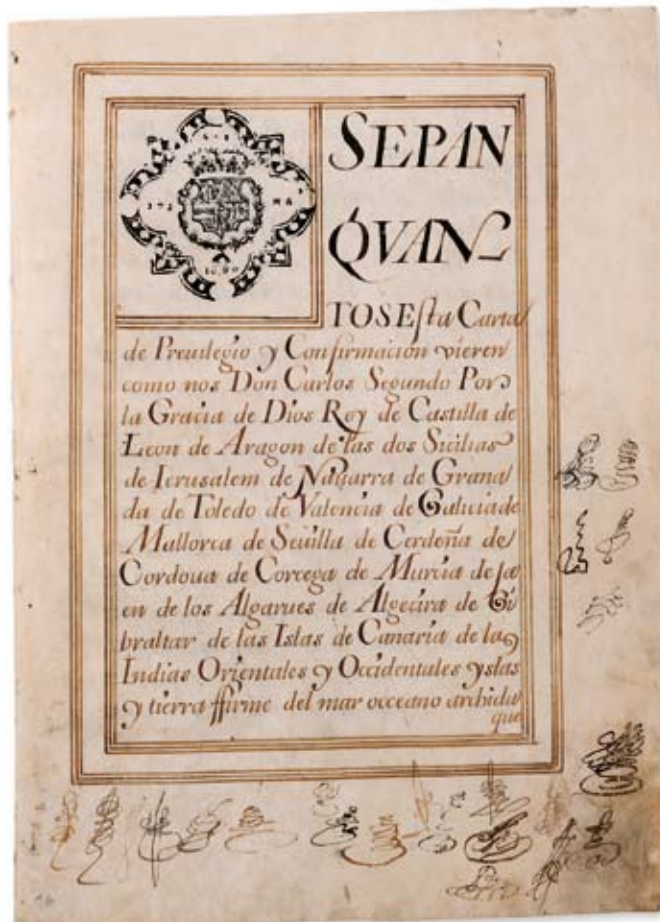 SEPAN
QVAN
TOS Esta Carta
de Preuilegio y Confirmacion vieren
como nos Don Carlos Segundo Por
la Gracia de Dios Rey de Castilla de
Leon de Aragon de las dos Sicilias
de Ierusalem de Nauarra de Grana
da de Toledo de Valencia de Galicia de
Mallorca de Seuilla de Cerdeña de
Cordoua de Corcega de Murcia de Ja
en de los Algarues de Algecira de Gi
braltar de las Islas de Canaria de las
Indias Orientales y Occidentales yslas
y tierra ffirme del mar occeano archidu
que